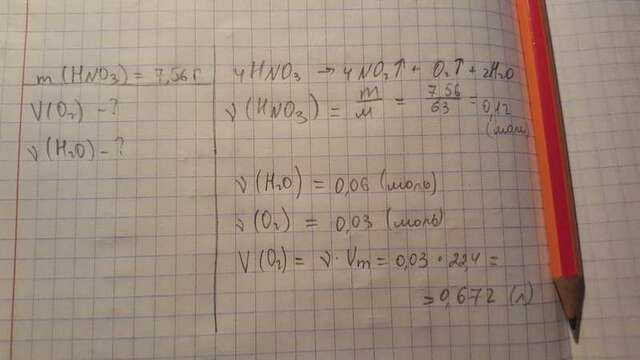 m (HNO₃) = 7,56 г
V(O₂) - ?
ν (H₂O) - ?
4HNO₃ → 4NO₂↑ + O₂↑ + 2H₂O
ν (HNO₃) = m/M = 7,56/63 = 0,12 (моль)
ν (H₂O) = 0,06 (моль)
ν (O₂) = 0,03 (моль)
V (O₂) = ν · Vm = 0,03 · 22,4 =
= 0,672 (л)